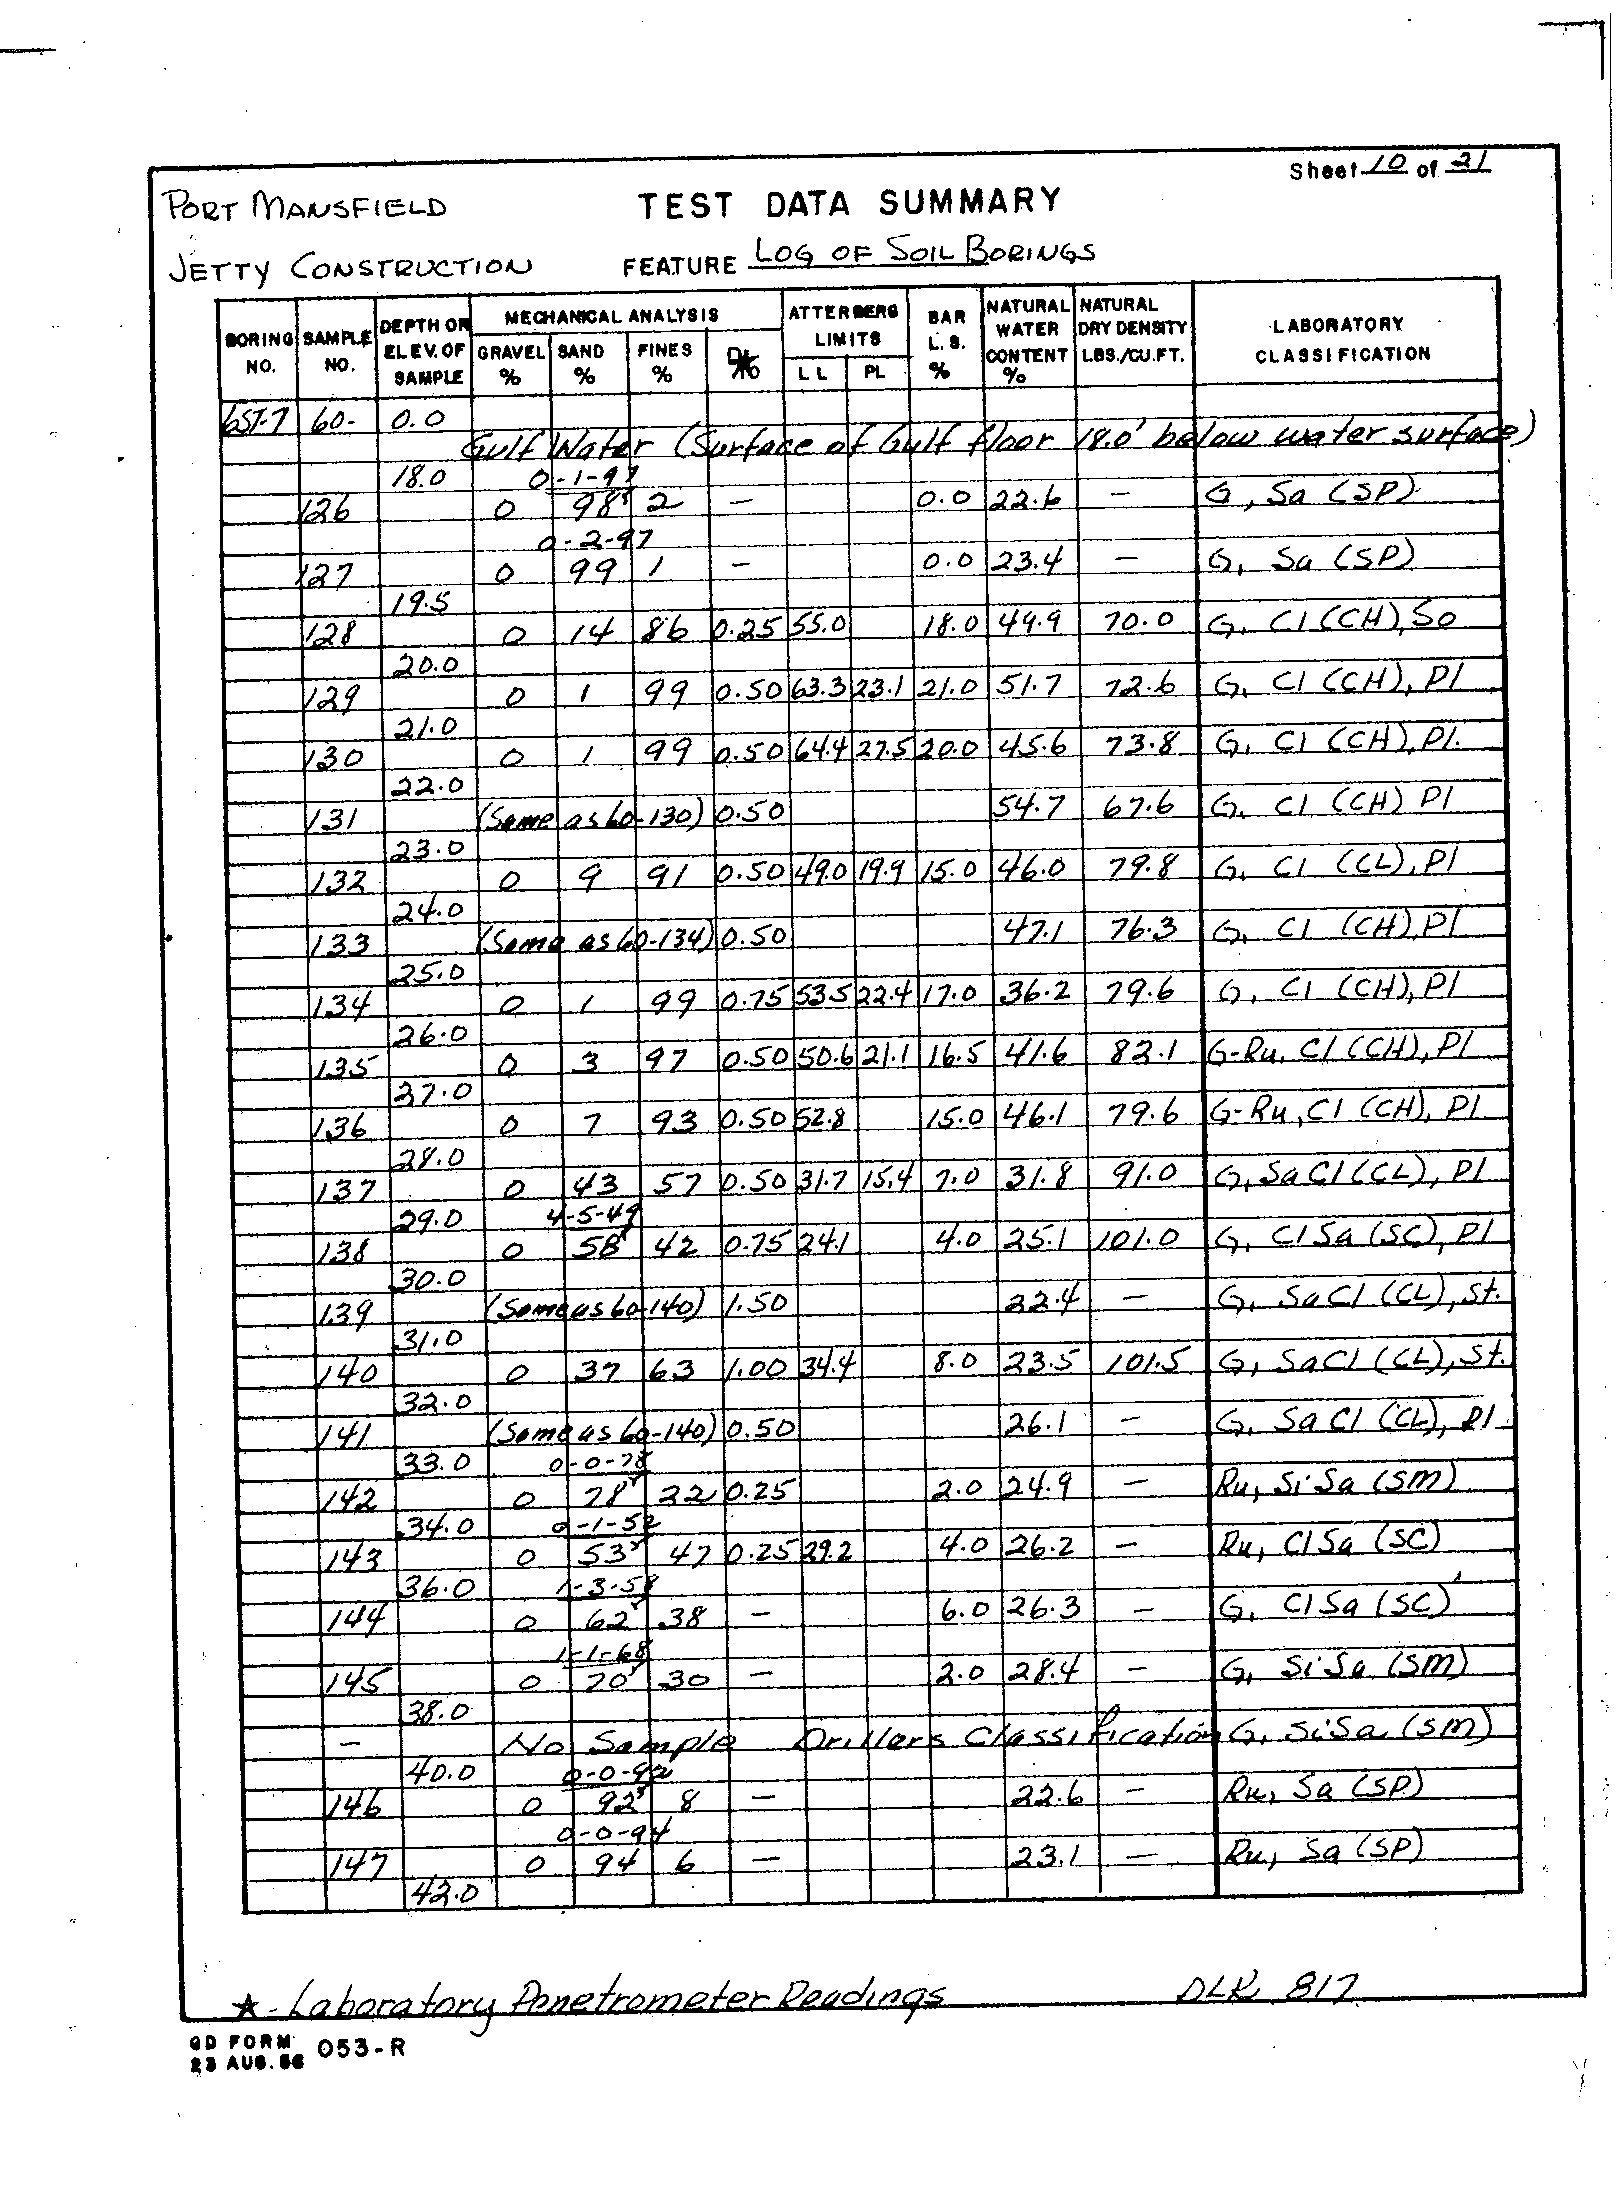 Sheet 10 of 21
PORT MANSFIELD TEST DATA SUMMARY
JETTY CONSTRUCTION FEATURE LOG OF SOIL BORINGS
BORING NO. SAMPLE NO. DEPTH OR ELEV. OF SAMPLE MECHANICAL ANALYSIS GRAVEL % SAND % FINES % ATTERBERG LIMITS LL PL BAR L.S. % NATURAL WATER CONTENT % NATURAL DRY DENSITY LBS./CU.FT. LABORATORY CLASSIFICATION
6ST-7 60- 0.0
Gulf Water (Surface of Gulf floor 18.0' below water surface)
18.0 0-1-97
126 0 98 2 — 0.0 22.6 — G, Sa (SP).
0-2-97
127 0 99 1 — 0.0 23.4 — G, Sa (SP)
19.5
128 0 14 86 0.25 55.0 18.0 49.9 70.0 G, Cl (CH), So
20.0
129 0 1 99 0.50 63.3 23.1 21.0 51.7 72.6 G, Cl (CH), Pl
21.0
130 0 1 99 0.50 64.4 27.5 20.0 45.6 73.8 G, Cl (CH), Pl.
22.0
131 (Same as 60-130) 0.50 54.7 67.6 G, Cl (CH) Pl
23.0
132 0 9 91 0.50 49.0 19.9 15.0 46.0 79.8 G, Cl (CL), Pl
24.0
133 (Same as 60-134) 0.50 47.1 76.3 G, Cl (CH), Pl
25.0
134 0 1 99 0.75 53.5 22.4 17.0 36.2 79.6 G, Cl (CH), Pl
26.0
135 0 3 97 0.50 50.6 21.1 16.5 41.6 82.1 G-Ru, Cl (CH), Pl
27.0
136 0 7 93 0.50 52.8 15.0 46.1 79.6 G-Ru, Cl (CH), Pl
28.0
137 0 43 57 0.50 31.7 15.4 7.0 31.8 91.0 G, SaCl (CL), Pl
29.0 4-5-49
138 0 58 42 0.75 24.1 4.0 25.1 101.0 G, ClSa (SC), Pl
30.0
139 (Same as 60-140) 1.50 22.4 — G, SaCl (CL), St.
31.0
140 0 37 63 1.00 34.4 8.0 23.5 101.5 G, SaCl (CL), St.
32.0
141 (Same as 60-140) 0.50 26.1 — G, SaCl (CL), Pl.
33.0 0-0-78
142 0 78 22 0.25 2.0 24.9 — Ru, SiSa (SM)
34.0 0-1-52
143 0 53 47 0.25 29.2 4.0 26.2 — Ru, ClSa (SC)
36.0 1-3-58
144 0 62 38 — 6.0 26.3 — G, ClSa (SC)
1-1-68
145 0 70 30 — 2.0 28.4 — G, SiSa (SM)
38.0
— No Sample Drillers Classification G, SiSa (SM)
40.0 0-0-92
146 0 92 8 — 22.6 — Ru, Sa (SP)
0-0-94
147 0 94 6 — 23.1 — Ru, Sa (SP)
42.0
★- Laboratory Penetrometer Readings DLR 817
GD FORM 053-R
23 AUG. 56